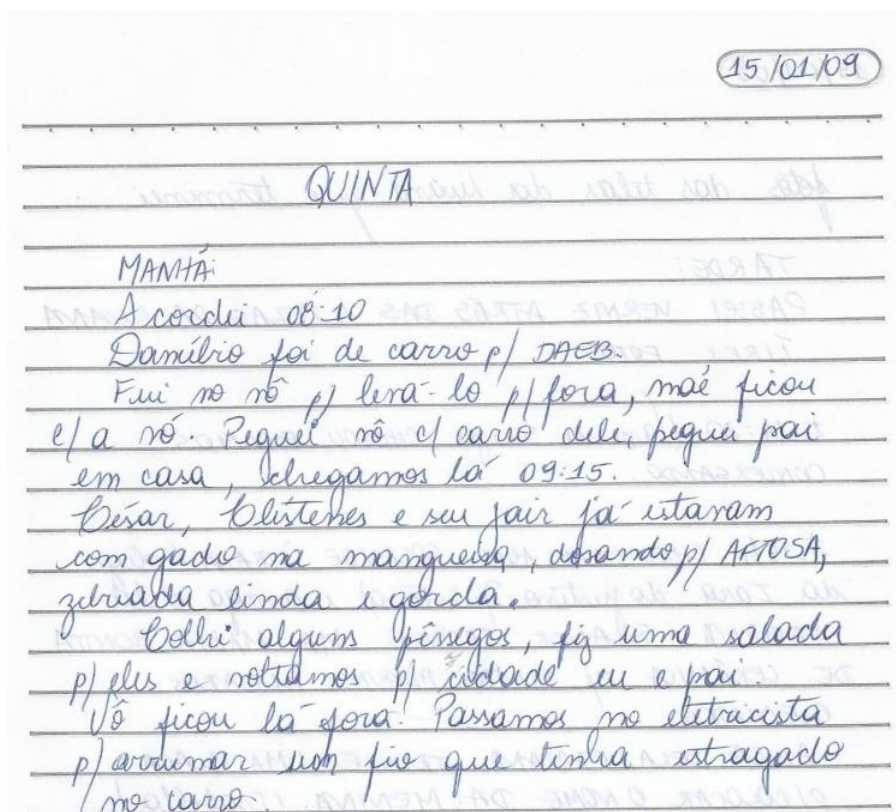 15/01/09
QUINTA
MANHÃ:
Acordei 08:10
Danúbio foi de carro p/ DAEB.
Fui no vô p/ levá-lo p/ fora, mãe ficou
c/ a vó. Peguei vô c/ carro dele, peguei pai
em casa, chegamos lá 09:15.
César, Clístenes e seu Jair já estavam
com gado na mangueira, dosando p/ AFTOSA,
zebuada linda e gorda.
Colhi alguns pêssegos, fiz uma salada
p/ eles e voltamos p/ cidade eu e pai.
Vô ficou lá fora. Passamos no eletricista
p/ arrumar um fio que tinha estragado
no carro.